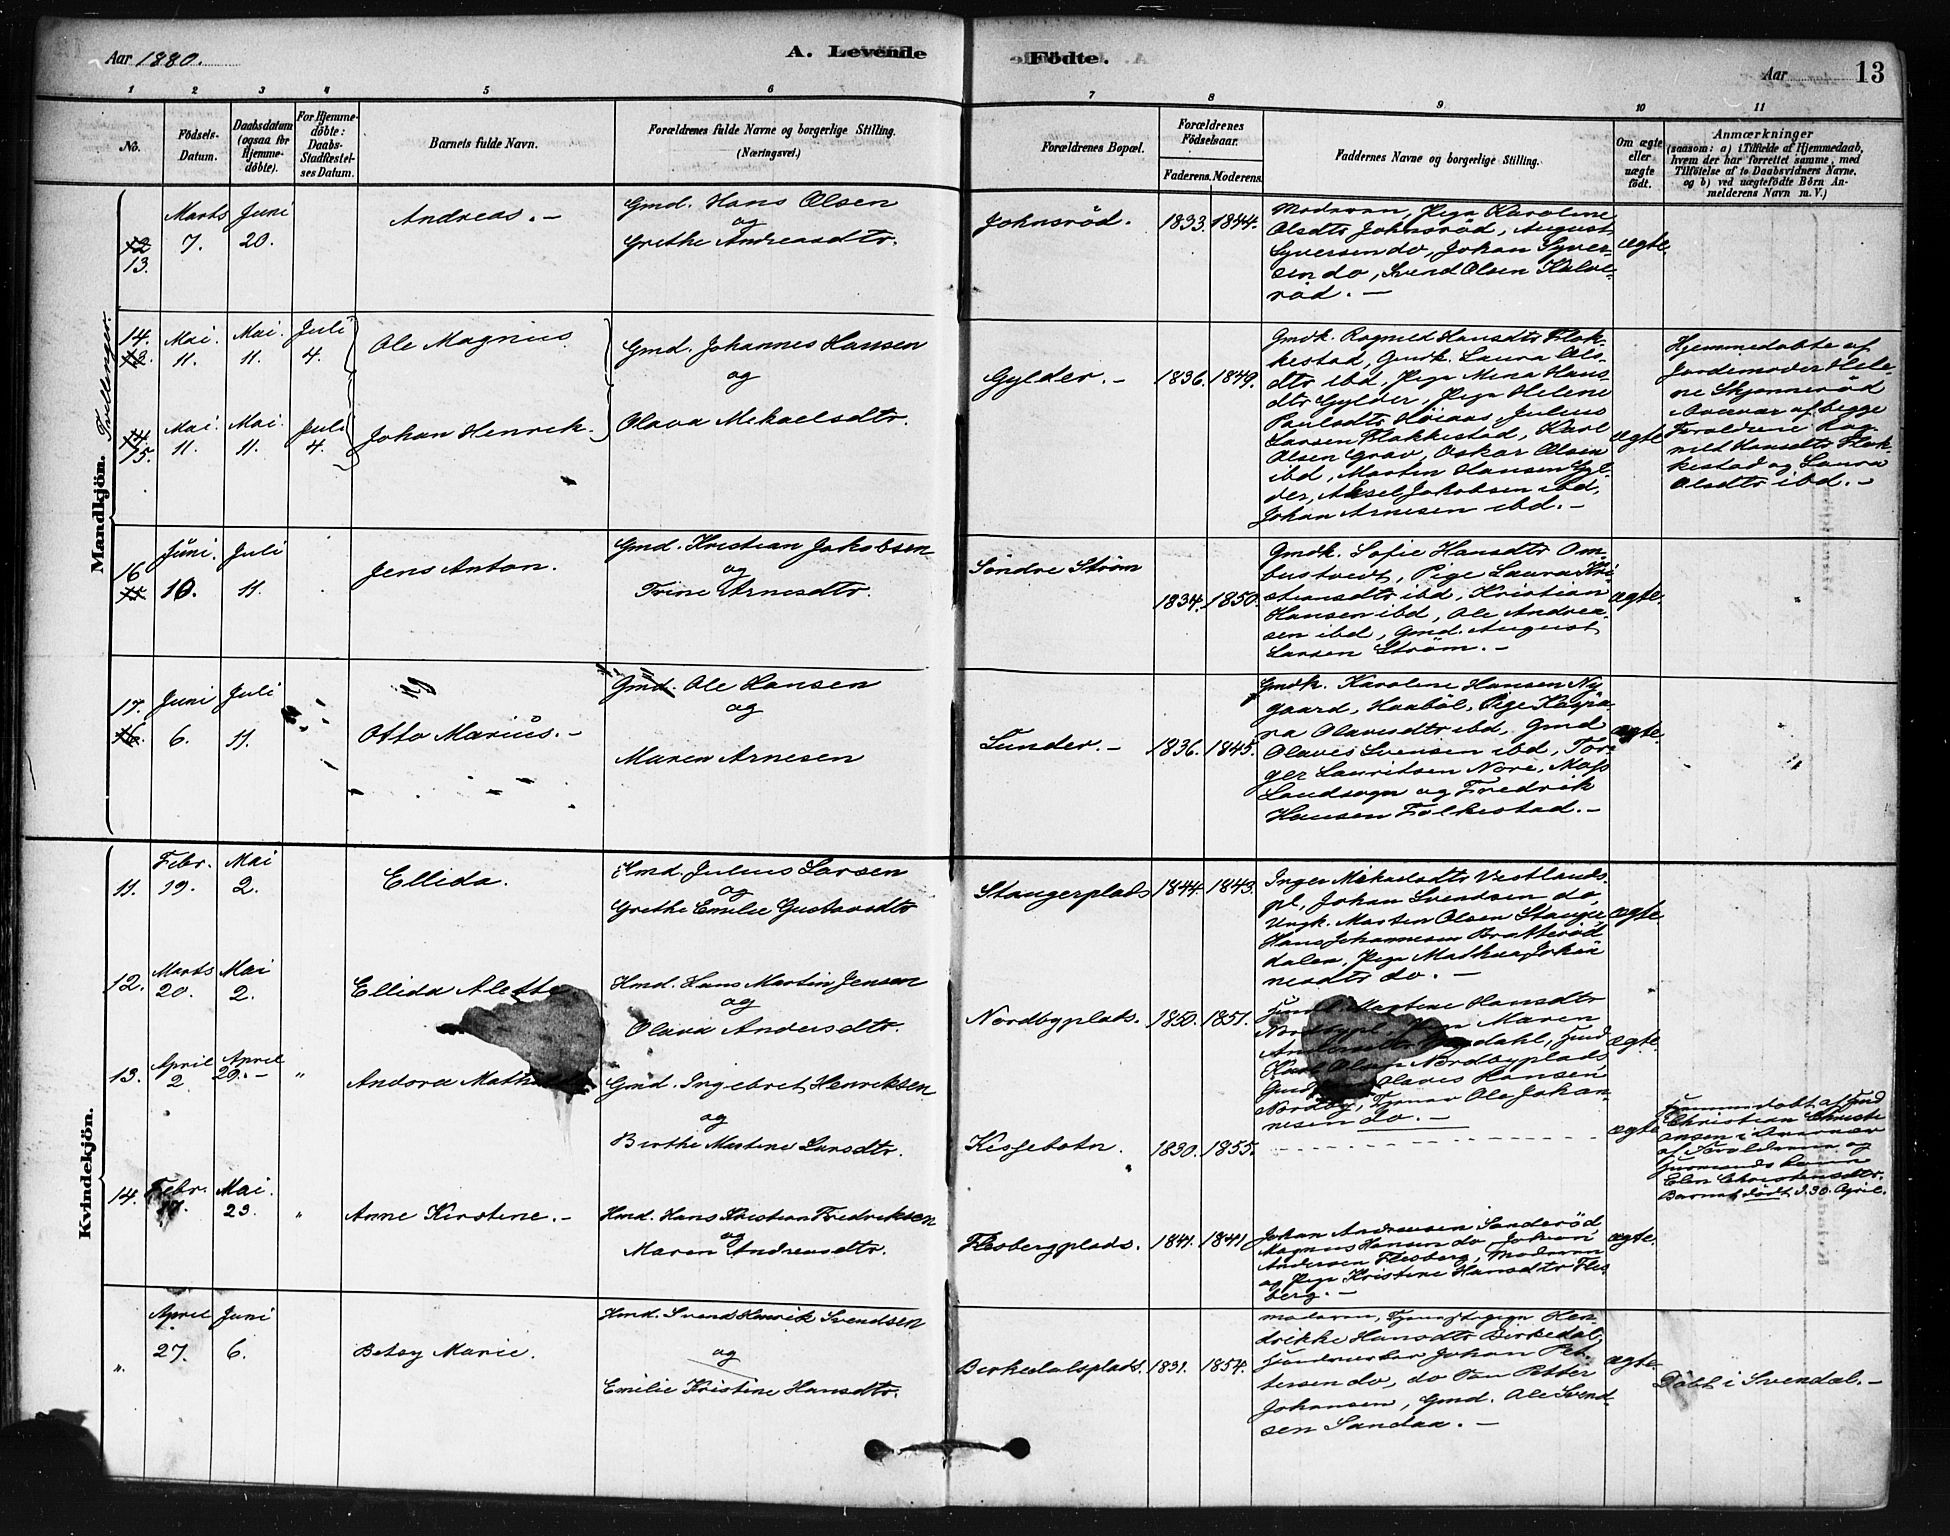 Aar 1880.
A. Levende
Födte.
Aar
13
1 2 3 4 5 6 7 8 9 10 11
No.
Födsels-
Datum.
Daabsdatum
(ogsaa for
Hjemme-
döbte).
For Hjemme-
döbte:
Daabs-
Stadfæstel-
ses Datum.
Barnets fulde Navn.
Forældrenes fulde Navne og borgerlige Stilling.
(Næringsvei.)
Forældrenes Bopæl.
Forældrenes
Födselsaar.
Faderens. Moderens.
Faddernes Navne og borgerlige Stilling.
Om ægte
eller
uægte
födt.
Anmærkninger
(saasom: a) i Tilfælde af Hjemmedaab,
hvem der har forrettet samme, med
Tilföielse af to Daabsvidners Navne.
og b) ved uægtefödte Börn An-
melderens Navn m. V.)
Mandkjön.
Tvillinger.
12
13.
Marts
7.
Juni
20.
Andreas. -
Gmd. Hans Olsen
og
Grethe Andreasdtr.
Johnsröd.
1833. 1844.
Moderen, Pige Karoline
Olsdtr Johnsröd, August
Syversen do, Johan Syver-
sen do, Svend Olsen Kalve-
röd. -
ægte
14.
13.
Mai.
11.
Mai.
11.
Juli
4.
Ole Magnus
Gmd. Johannes Hansen
og
Olava Mekaelsdtr.
Gylder. -
1836. 1849.
Gmdk. Ragnild Hansdtr Flak-
kestad, Gmdk. Laura Ols-
dtr ibd, Pige Mina Hans-
dtr Gylder, Pige Helene
Paulsdtr Höiaas, Julius
Larsen Flakkestad, Karl
Olsen Grav, Oskar Olsen
ibd, Martin Hansen Gyl-
der, Aksel Jakobsen ibd,
Johan Arnesen ibd. -
ægte
Hjemmedøbte af
Jordemoder Hele-
ne Skjønneröd
Overvær af begge
Forældrene Rag-
nild Hansdtr Flak-
kestad og Laura
Olsdtr ibd. -
14
15.
Mai.
11.
Mai.
11.
Juli
4.
Johan Henrik.
16
15
Juni.
10.
Juli
11.
Jens Anton.
Gmd. Kristian Jakobsen
og
Trine Arnesdtr.
Söndre Ström
1834. 1850.
Gmdk. Sofie Hansdtr Om-
bustvedt, Pige Laura Kri-
stiansdtr ibd, Kristian
Hansen ibd, Ole Andrea-
sen ibd, Gmd. August
Larsen Ström. -
ægte.
17.
16.
Juni
6.
Juli
11.
Otto Marius. -
Gmd. Ole Hansen
og
Maren Arnesen
Tunder. -
1836. 1845.
Gmdk. Karoline Hansen Ny-
gaard, Haaböl, Pige Kaspa-
ra Olavesdtr ibd, Gmd
Olaves Svensen ibd, Tor-
ger Lauritsen Nore, Moss
Landsogn og Fredrik
Hansen Folkestad. -
ægte.
Kvindekjön.
11.
Febr.
19.
Mai
2.
Ellida.
Hmd. Julius Larsen
og
Grethe Emilie Gustavsdtr
Stangerplads
1844. 1843.
Inger Mekaelsdtr Vestlands-
pl, Johan Svendsen do,
Ungk. Martin Olsen Stanger
Hans Johannesen Bratteröd
dalen, Pige Mathea Johan-
nesdtr do. -
ægte
12.
Marts
20.
Mai
2.
Ellida Alette
Hmd. Hans Martin Jensen
og
Olava Andersdtr.
Nordbyplads.
1850. 1851.
Martine Hansdtr
Maren
Olsen Nordbyplads,
Olaves Hansen
Nordby, Tjener Ole Johan-
nesen do. -
ægte.
13.
April
2
April
29. -
"
Andora
Gmd. Ingebret Henriksen
og
Birthe Martine Larsdtr.
1830. 1855.
ægte
Hjemmedøbt af
Christian Christi-
ansen i Overvær
af Forældrene og
Elen Christensdtr.
Barnet dödt d. 30. April.
14.
Febr.
17.
Mai.
23.
"
Anne Kirstine. -
Hmd. Hans Kristian Fredriksen
og
Maren Andreasdtr.
Flesbergplads.
1841. 1841
Johan Andreasen Sanderöd
Magnus Hansen do Johan
Andersen Flesberg, Moderen
og Pige Kristine Hansdtr Fles-
berg. -
ægte.
".
April
27.
Juni
6.
Betsy Marie.
Hmd. Svend Henrik Svendsen
og
Emilie Kristine Hansdtr.
Birkedalsplads.
1831. 1854.
Moderen, Hen-
drikke Hansdtr Birkedal,
Johan Pet-
tersen do, do Petter
Johansen, Gmd. Ole Svend-
sen Sandaa. -
ægte.
Döbt i Svendal. -